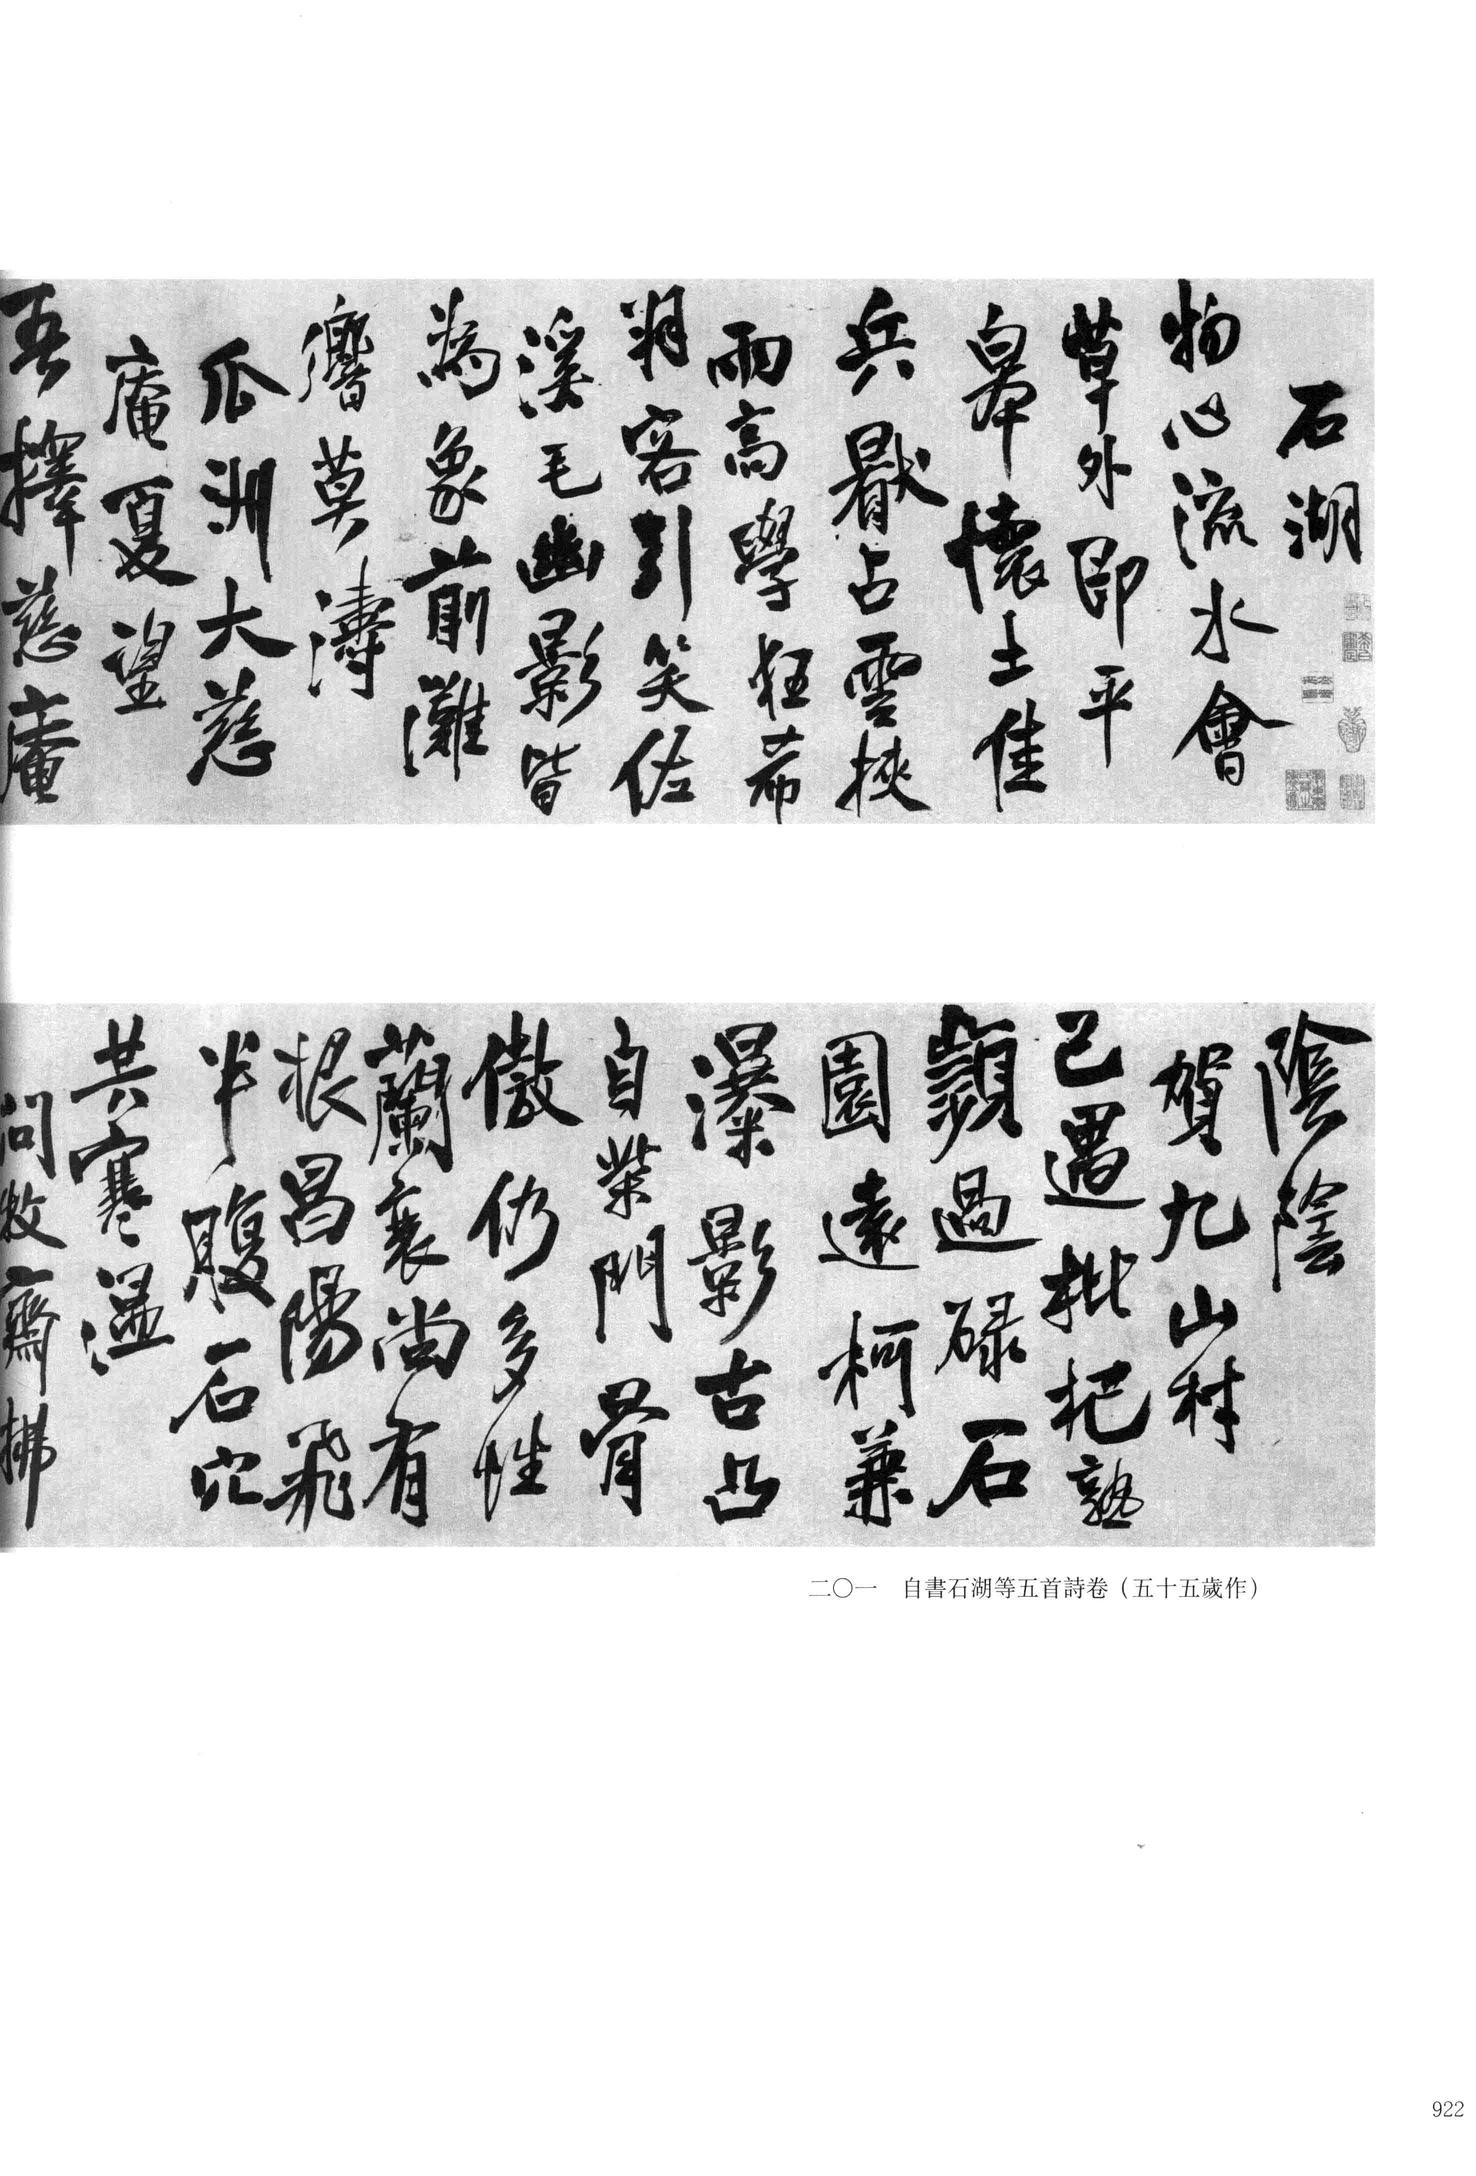 石湖
物心流水會
草外即平
皋懷土佳
兵厭占雲挾
雨高學狂茄
羽客引笑佐
溪毛幽影皆
為象前灘
響莫濤
瓜洲大慈
庵夏望
吾擇慈庵
陰陰
賀九山村
已遇枇杷熟
顰過碌石
園遠柯兼
瀑影古凸
自柴門骨
傲仍多性
蘭衰尚有
根昌陽飛
半腹石穴
共寒溫
問牧齋拂
二〇一　自書石湖等五首詩卷（五十五歲作）
922